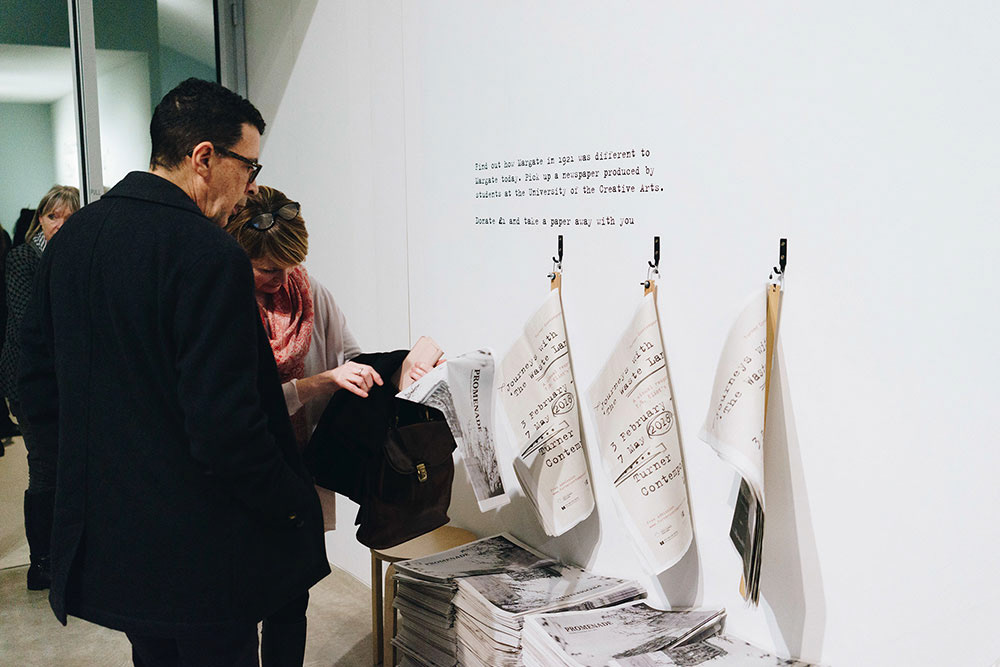 Find out how Margate in 1921 was different to
Margate today. Pick up a newspaper produced by
students at the University of the Creative Arts.
Donate £1 and take a paper away with you
PROMENADE
Journeys with
'The Waste Lan
3 February
7 May 2018
Turner
Contempo
Journeys with
'The Waste Lan
3 February
7 May 2018
Turner
Contemp
Journeys wi
'The Was
3
PROMENADE
PROMENADE